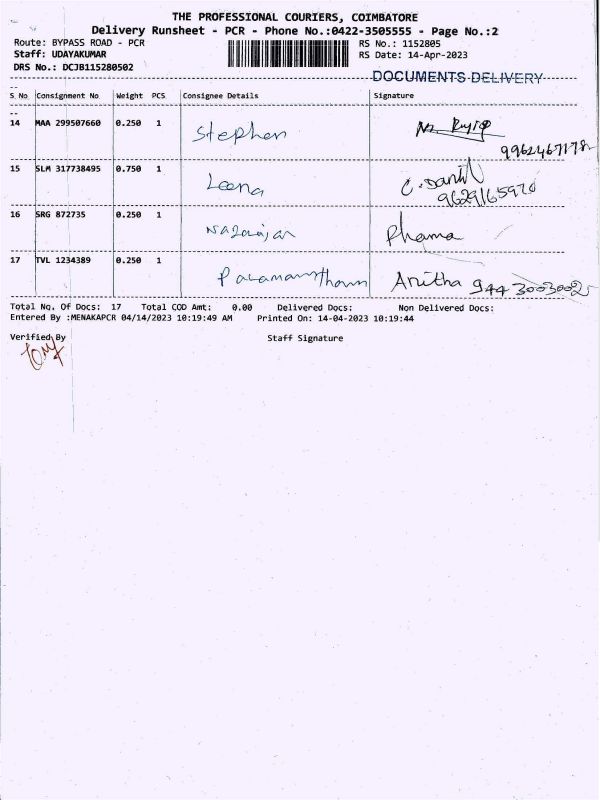 THE PROFESSIONAL COURIERS, COIMBATORE
Delivery Runsheet - PCR - Phone No.:0422-3505555 - Page No.:2
Route: BYPASS ROAD - PCR RS No.: 1152805
Staff: UDAYAKUMAR RS Date: 14-Apr-2023
DRS No.: DCJB115280502
DOCUMENTS DELIVERY
S.No Consignment No Weight PCS Consignee Details Signature
14 MAA 299507660 0.250 1 Stephen
9962467178
15 SLM 317738495 0.750 1 Leena C. Daniel
9629165970
16 SRG 872735 0.250 1 Nagarajan
17 TVL 1234389 0.250 1 Anitha 9443003002
Total No. Of Docs: 17 Total COD Amt: 0.00 Delivered Docs: Non Delivered Docs:
Entered By :MENAKAPCR 04/14/2023 10:19:49 AM Printed On: 14-04-2023 10:19:44
Verified By Staff Signature